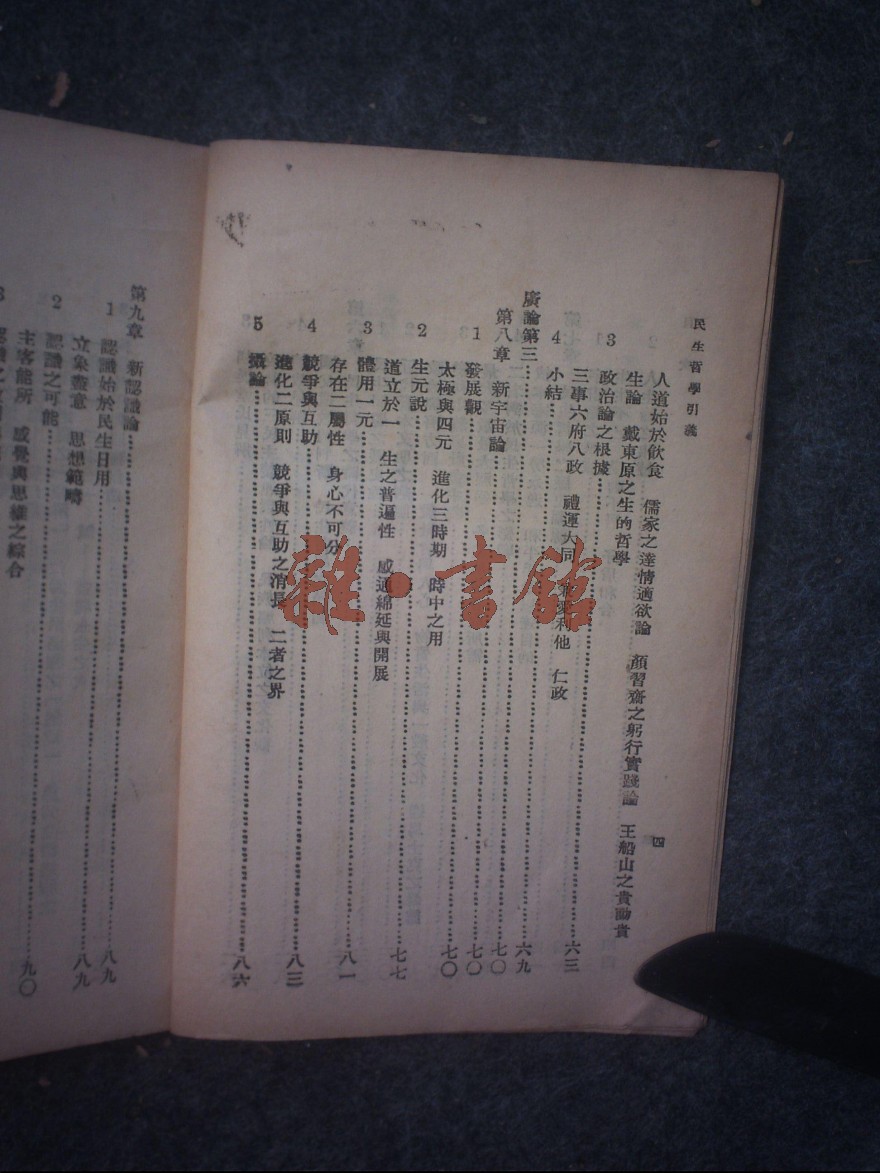 民生哲學引義
四
人道始於飲食 儒家之達情適欲論 顏習齋之躬行實踐論 王船山之貴動貴
生論 戴東原之生的哲學
3 政治論之根據……六三
三事六府八政 禮運大同 兼愛利他 仁政
4 小結……六九
廣論第三……七〇
第八章 新宇宙論……七〇
1 發展觀……七〇
太極與四元 進化三時期 時中之用
2 生元說……七七
道立於一 生之普遍性 感通綿延與開展
3 體用一元……八一
存在二屬性 身心不可分
4 競爭與互助……八三
進化二原則 競爭與互助之消長 二者之界
5 攝論……八六
第九章 新認識論……八九
1 認識始於民生日用……八九
立象盡意 思想範疇
2 認識之可能……九〇
主客能所 感覺與思維之綜合
3 認識之
雜·書館